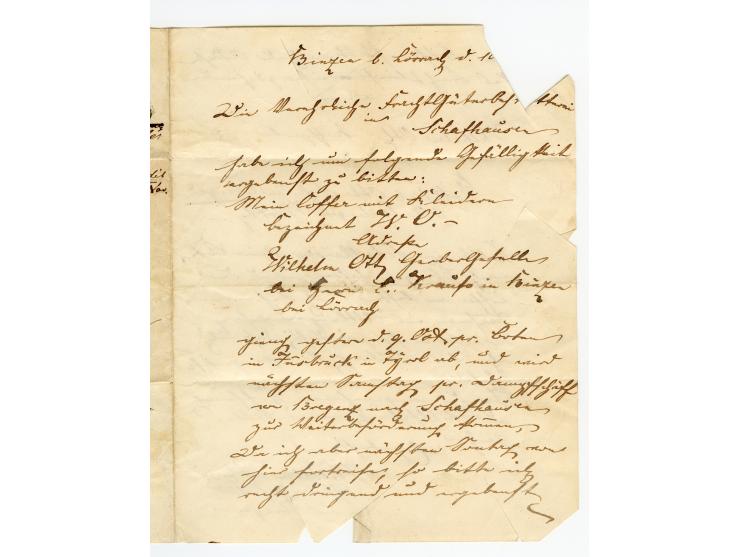 Binzen b. Lörrach d. 10
Die Verehrliche FrachtGüterbeh
in
Schafhausen
habe ich um folgende Gefälligkeit
ergebenst zu bitten:
Mein Coffer mit Kleidern
bezeichnet W. O. –
Adresse
Wilhelm Ott, Gerbergeselle
bei Herrn Krauss in Binzen
bei Lörrach
gieng gestern d. 9. Oct. pr. Boten
in Insbruck in Tyrol ab, und wird
nächsten Samstag pr. Dampfschiff
von Bregenz nach Schafhausen
zur Weiterbeförderung kommen,
Da ich aber nächsten Sontag von
hier fortreise, so bitte ich
recht dringend und ergebenst